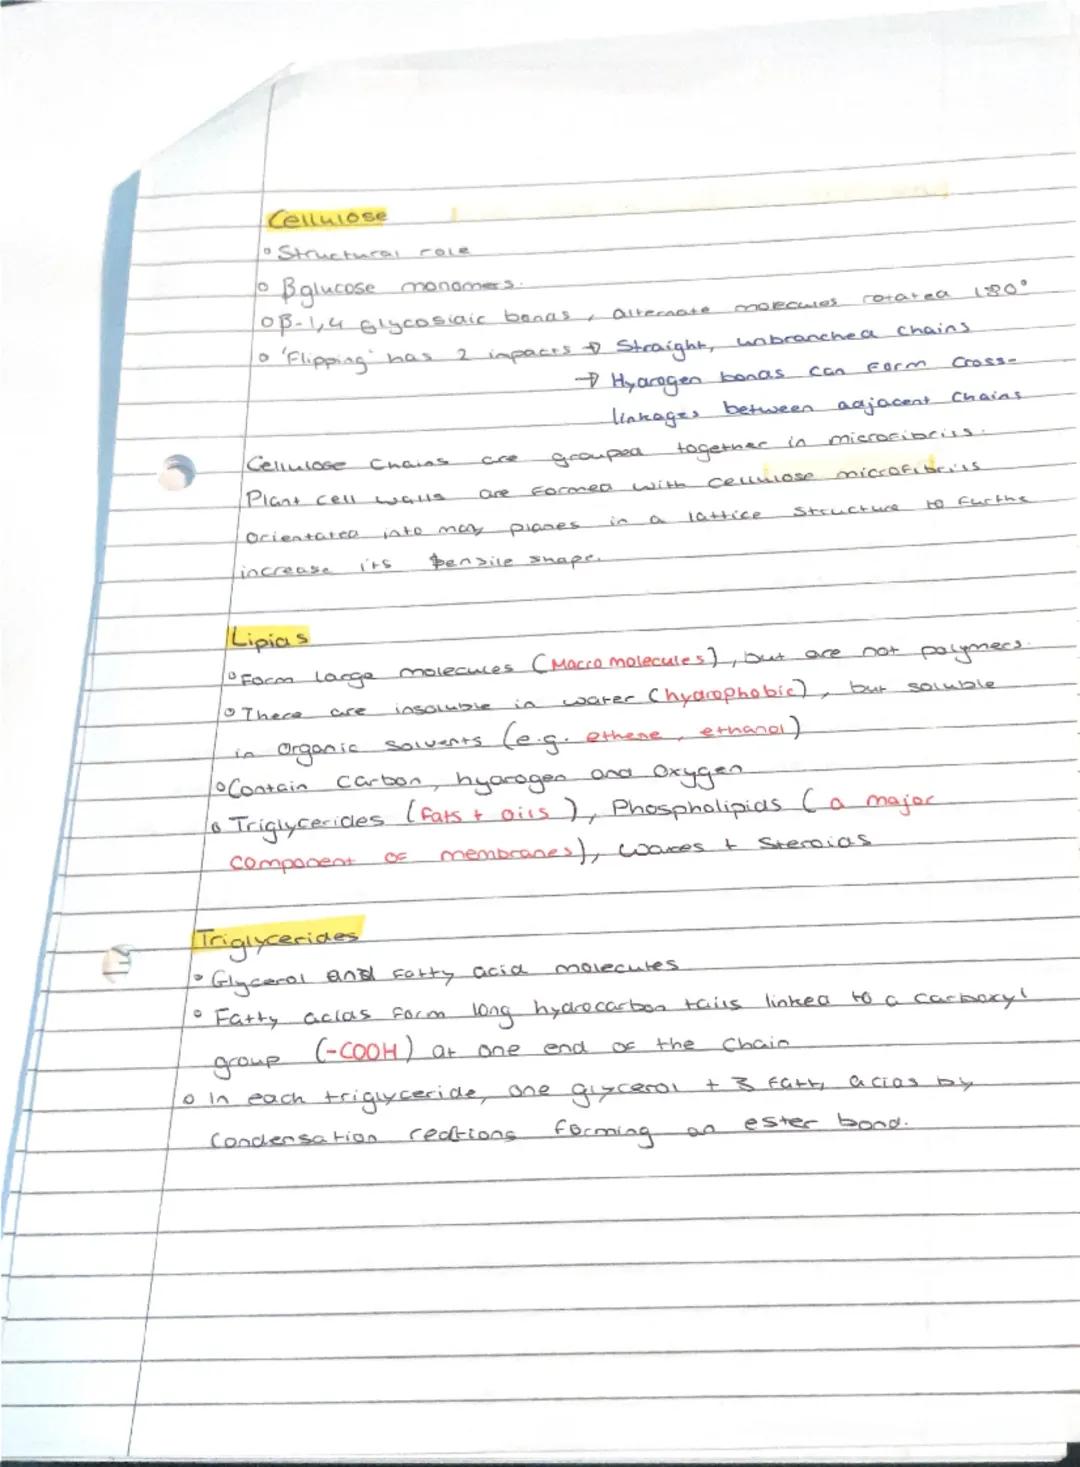 Cellulose
° Structural role
° βglucose monomers.
° β-1,4 glycosidic bonds, alternate molecules rotated 180°
° 'Flipping' has 2 impacts → Straight, unbranched chains
→ Hydrogen bonds can form cross-
linkages between adjacent chains
Cellulose chains are grouped together in microfibrils.
Plant cell walls are formed with cellulose microfibrils
orientated into many planes in a lattice structure to furthe
increase its tensile shape.
Lipids
° Form large molecules (Macromolecules), but are not polymers.
° There are insoluble in water (hydrophobic), but soluble
in organic solvents (e.g. ethene, ethanol)
° Contain carbon, hydrogen and oxygen
° Triglycerides (fats + oils), Phospholipids (a major
component of membranes), waxes + Steroids
Triglycerides
° Glycerol and fatty acid molecules
° Fatty acids form long hydrocarbon tails linked to a carboxyl
group (-COOH) at one end of the chain
° In each triglyceride, one glycerol + 3 fatty acids by
condensation reactions forming an ester bond.